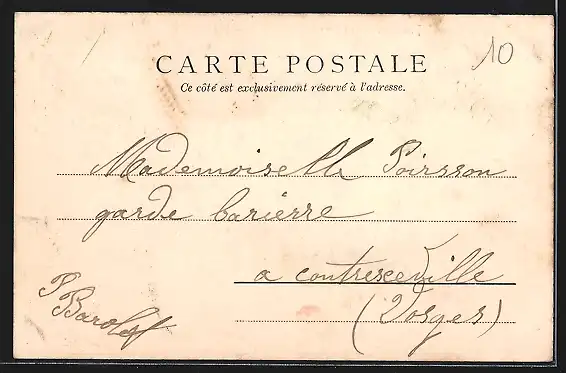 10
CARTE POSTALE
Ce côté est exclusivement réservé à l'adresse.
Mademoiselle Poirsson
garde barièrre
a contrexceville
(Vosges)
P Barolet